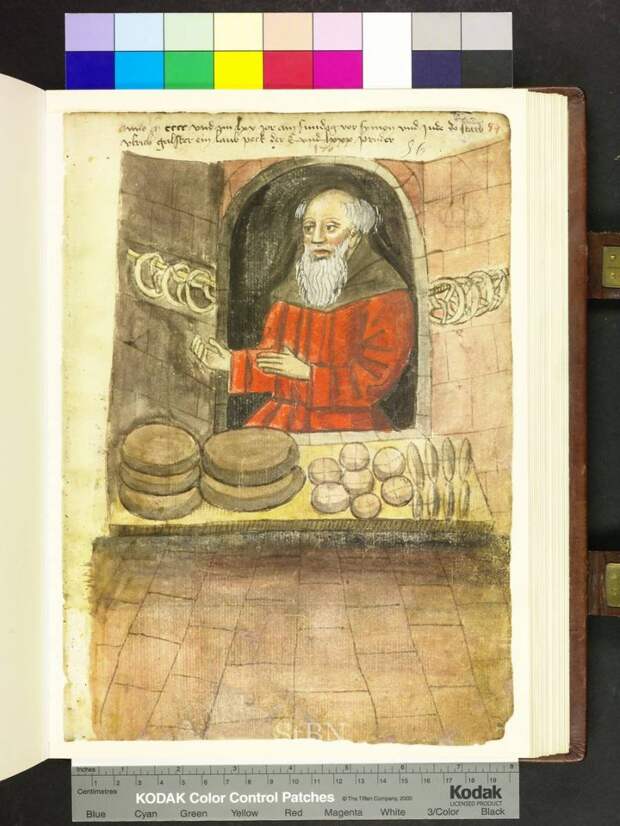 Anno m cccc vnd jm lxv jor am suntag vor symon vnd jude do starb
vlrich ein peck der C vnd lxxx pruder
56
StBN
Inches 1 2 3 4 5 6 7 8
Centimetres 1 2 3 4 5 6 7 8 9 10 11 12 13 14 15 16 17 18 19
KODAK Color Control Patches © The Tiffen Company, 2000 Kodak
LICENSED PRODUCT
Blue Cyan Green Yellow Red Magenta White 3/Color Black